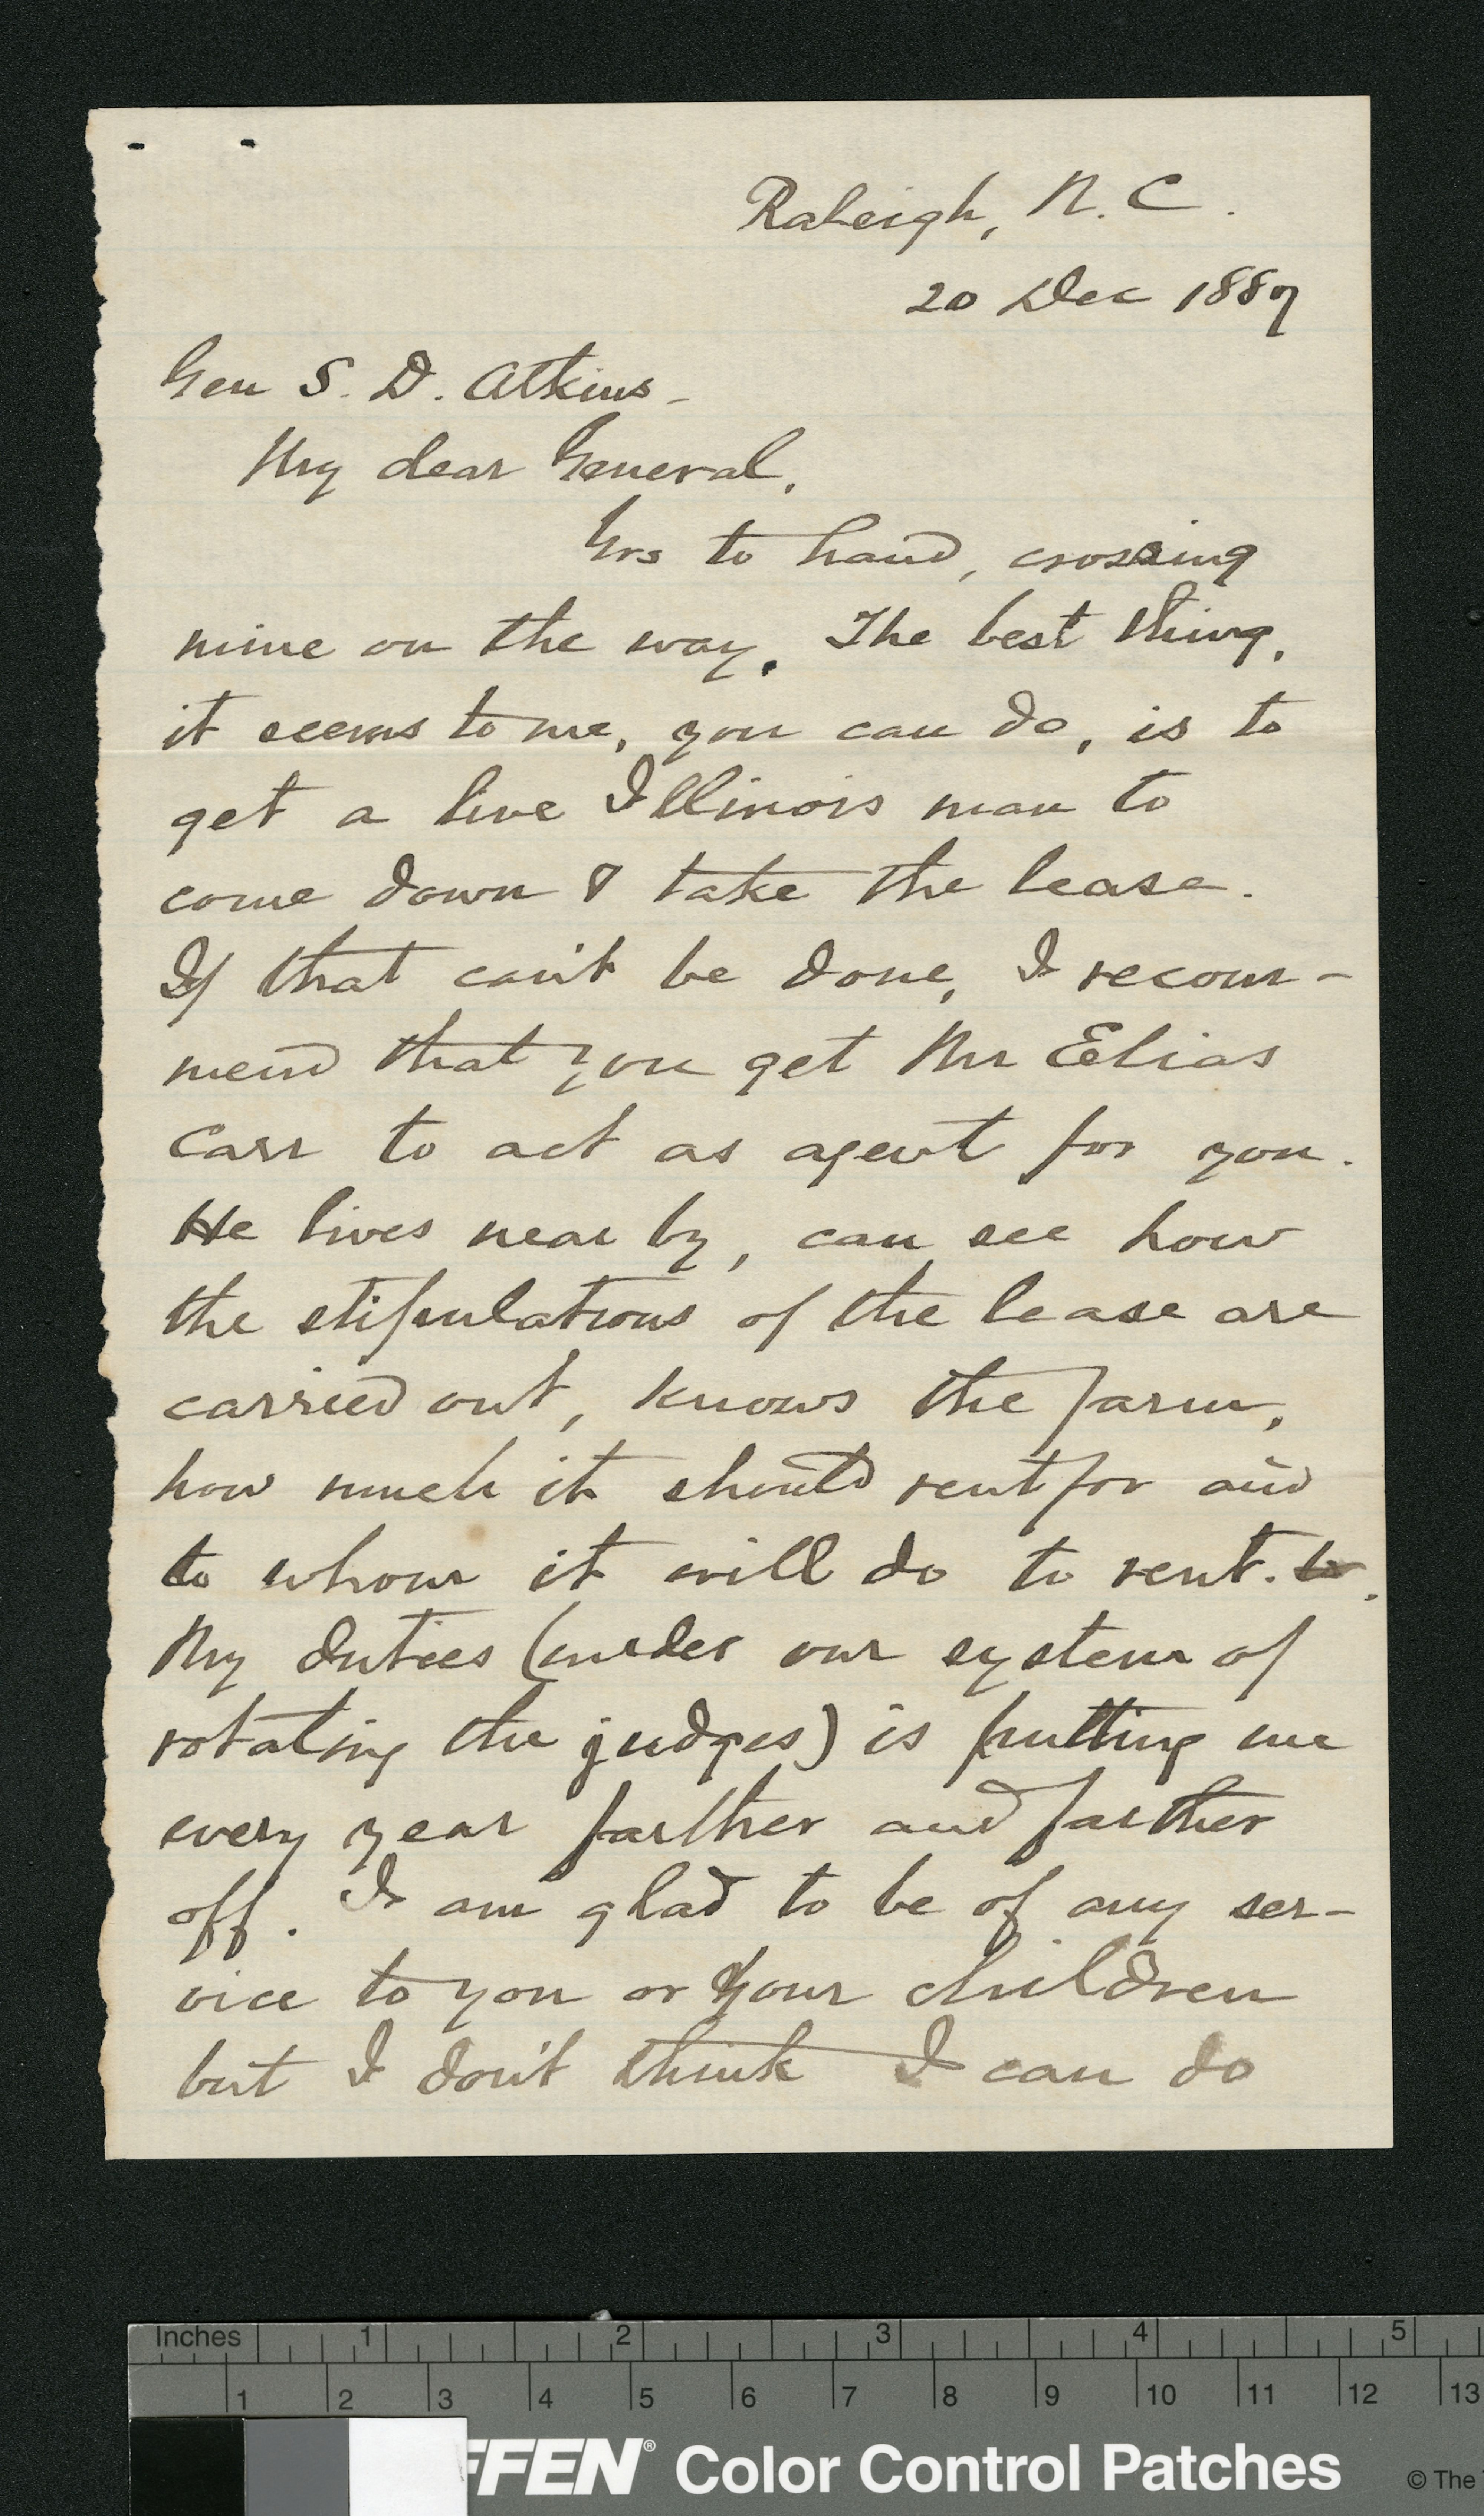 Raleigh, N. C.
20 Dec 1887
Gen S. D. Atkins -
My dear General,
Yrs to hand, crossing
mine on the way. The best thing,
it seems to me, you can do, is to
get a live Illinois man to
come down & take the lease.
If that can't be done, I recom-
mend that you get Mr Elias
Carr to act as agent for you.
He lives near by, can see how
the stipulations of the lease are
carried out, knows the farm,
how much it should rent for and
to whom it will do to rent.
My duties (under our system of
rotating the judges) is putting me
every year farther and farther
off. I am glad to be of any ser-
vice to you or your children
but I don't think I can do
Inches 1 2 3 4 5
1 2 3 4 5 6 7 8 9 10 11 12 13
FFEN® Color Control Patches © The